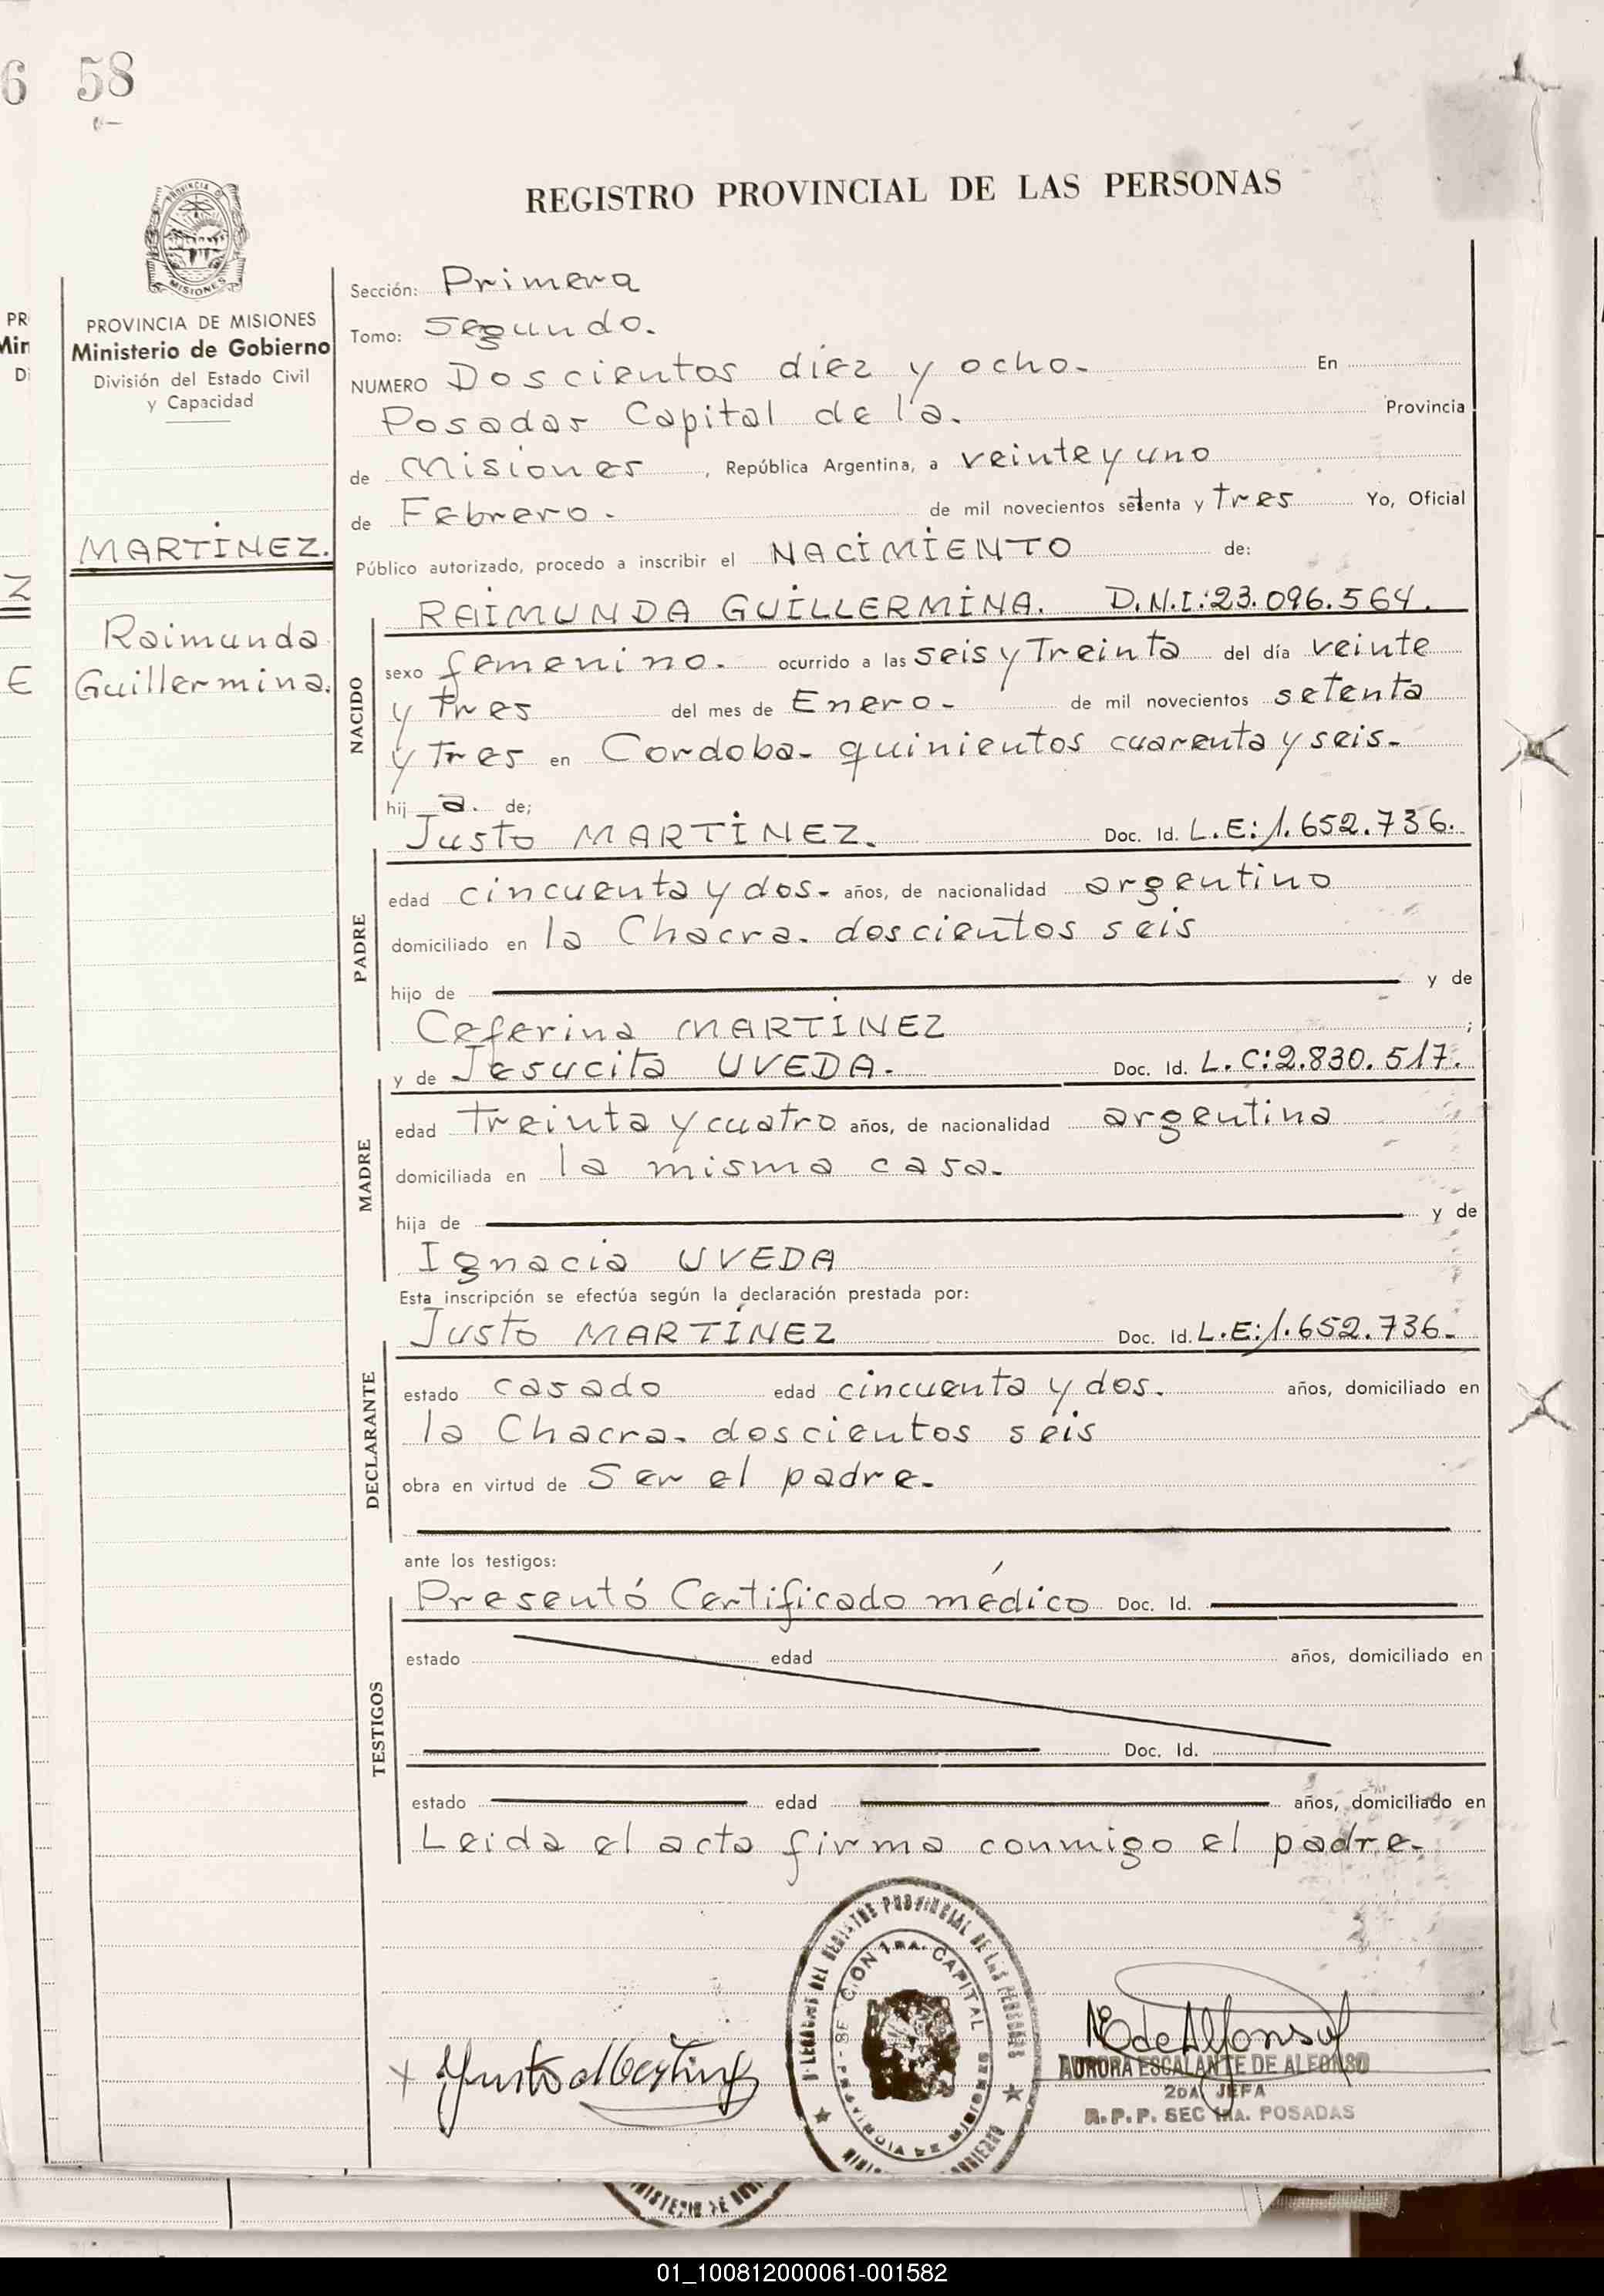 6 58
REGISTRO PROVINCIAL DE LAS PERSONAS
PROVINCIA DE MISIONES
PROVINCIA DE MISIONES
Ministerio de Gobierno
División del Estado Civil
y Capacidad
MARTINEZ.
Raimunda
Guillermina.
Sección: Primera
Tomo: Segundo.
NUMERO Doscientos diez y ocho. En
Posadas Capital de la. Provincia
de Misiones, República Argentina, a veinte y uno
de Febrero. de mil novecientos setenta y tres Yo, Oficial
Público autorizado, procedo a inscribir el NACIMIENTO de:
NACIDO
RAIMUNDA GUILLERMINA. D.N.I.:23.096.564.
sexo femenino. ocurrido a las seis y Treinta del día veinte
y tres del mes de Enero. de mil novecientos setenta
y Tres en Cordoba. quinientos cuarenta y seis.
hij a. de;
PADRE
Justo MARTINEZ. Doc. Id. L.E:1.652.736.
edad cincuenta y dos. años, de nacionalidad argentino
domiciliado en la Chacra. doscientos seis
hijo de y de
Ceferina MARTINEZ ;
MADRE
y de Jesucita UVEDA. Doc. Id. L.C:2.830.517.
edad Treinta y cuatro años, de nacionalidad argentina
domiciliada en la misma casa.
hija de y de
Ignacia UVEDA
Esta inscripción se efectúa según la declaración prestada por:
DECLARANTE
Justo MARTINEZ Doc. Id. L.E:1.652.736.
estado casado edad cincuenta y dos. años, domiciliado en
la Chacra. doscientos seis
obra en virtud de Ser el padre.
ante los testigos:
TESTIGOS
Presentó Certificado médico Doc. Id.
estado edad años, domiciliado en
Doc. Id.
estado edad años, domiciliado en
Leida el acta firma conmigo el padre.
PROVINCIAL DE LAS PERSONAS
SECCION 1RA. CAPITAL
PROVINCIA DE MISIONES
AURORA ESCALANTE DE ALFONSO
2DA JEFA
R.P.P. SEC 1RA. POSADAS
MINISTERIO DE
01_100812000061-001582